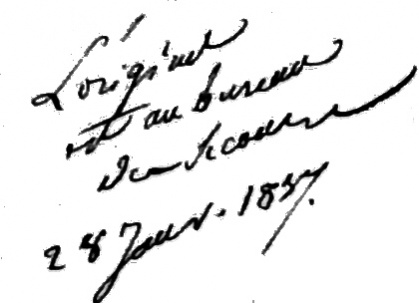 L'original
est au bureau
des secours
28 Janv. 1857.